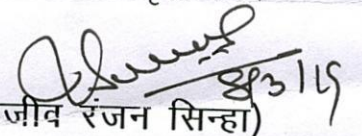 8/3/19
जीव रंजन सिन्हा)